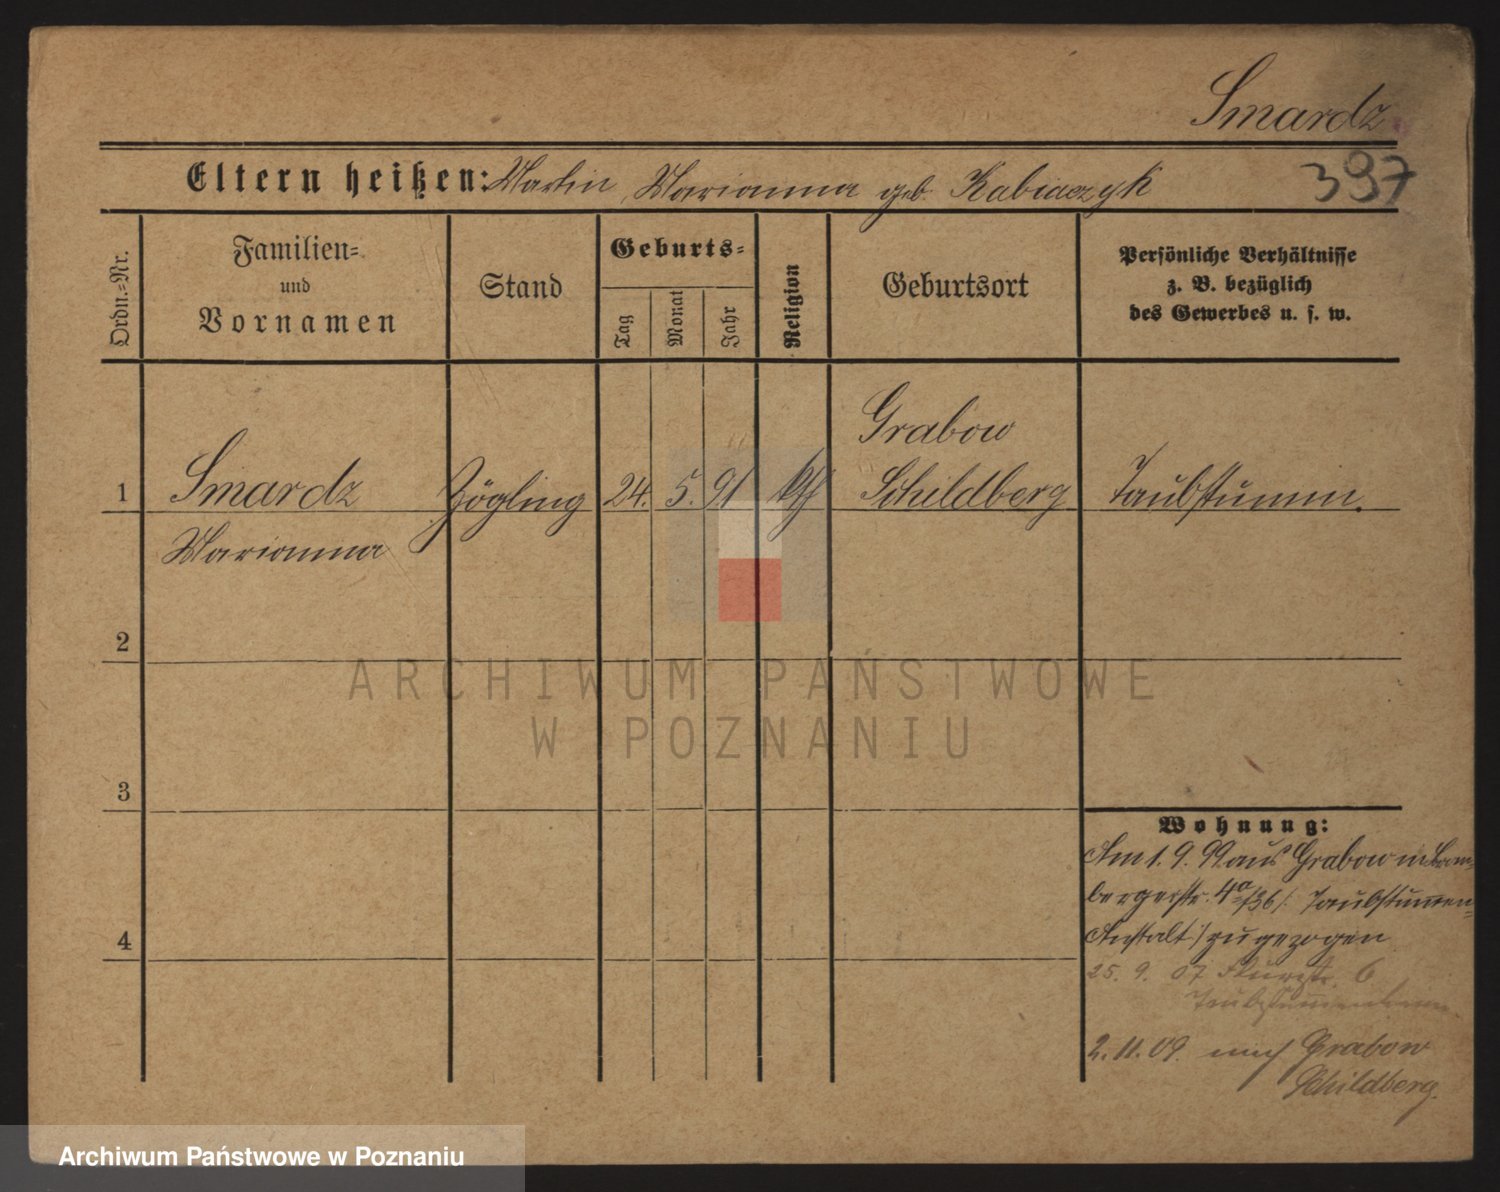 Smardz
397
Eltern heißen: Martin, Marianna geb. Kabiaczyk
Ordn.-Nr.
Familien-
und
Vornamen
Stand
Geburts-
Tag
Monat
Jahr
Religion
Geburtsort
Persönliche Verhältnisse
z. B. bezüglich
des Gewerbes u. s. w.
Grabow
1 Smardz Zögling 24. 5. 91 kth Schildberg Taubstumm.
Marianna
2
ARCHIWUM PAŃSTWOWE
W POZNANIU
3
Wohnung:
Am 1. 9. 99 aus Grabow in Brom-
bergerstr. 4a/36 /: Taubstummen-
Anstalt :/ zugezogen
4
25. 9. 07 6
Taubstummen
2. 11. 09. nach Grabow
Schildberg.
Archiwum Państwowe w Poznaniu